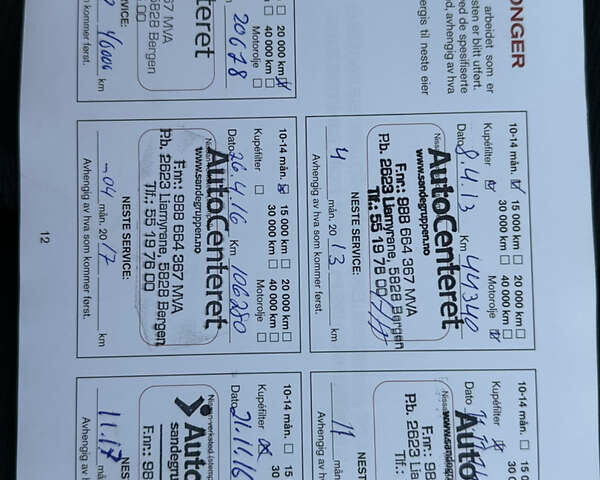 ONGER
arbeidet som er
sten er blitt utført.
ed de spesifiserte
d, avhengig av hva
ergis til neste eier
20 000 km
40 000 km
20678
Motorolje
teret
67 MVA
5828 Bergen
46000 km
kommer først.
10-14 mån. 15 000 km 20 000 km
30 000 km 40 000 km
Kupéfilter Motorolje
Dato 8.4.13 Km 44340
AutoCenteret
www.sandegruppen.no
F.nr.: 988 664 367 MVA
P.b. 2623 Liamyrane, 5928 Bergen
Tlf.: 55 19 76 00
NESTE SERVICE:
4 mån. 20 13
Avhengig av hva som kommer først.
10-14 mån. 15 000 km 20 000 km
30 000 km 40 000 km
Kupéfilter Motorolje
Dato 26.4.16 Km 106280
AutoCenteret
www.sandegruppen.no
F.nr.: 988 664 367 MVA
P.b. 2623 Liamyrane, 5928 Bergen
Tlf.: 55 19 76 00
NESTE SERVICE:
04 mån. 20 17 km
Avhengig av hva som kommer først.
12
10-14 mån. 15
30
Kupéfilter
Dato
Auto
www.sandegruppen
F.nr.: 98
P.b. 2623 L
Tlf.:
NESTE
11 mån.
Avhengig av h
10-14 mån. 15
30
Kupéfilter
Dato 21.11.16
Nissan-verksted (stempel
Auto
sandegrup
F.nr.: 98
NES
11.17
Avhengig av h